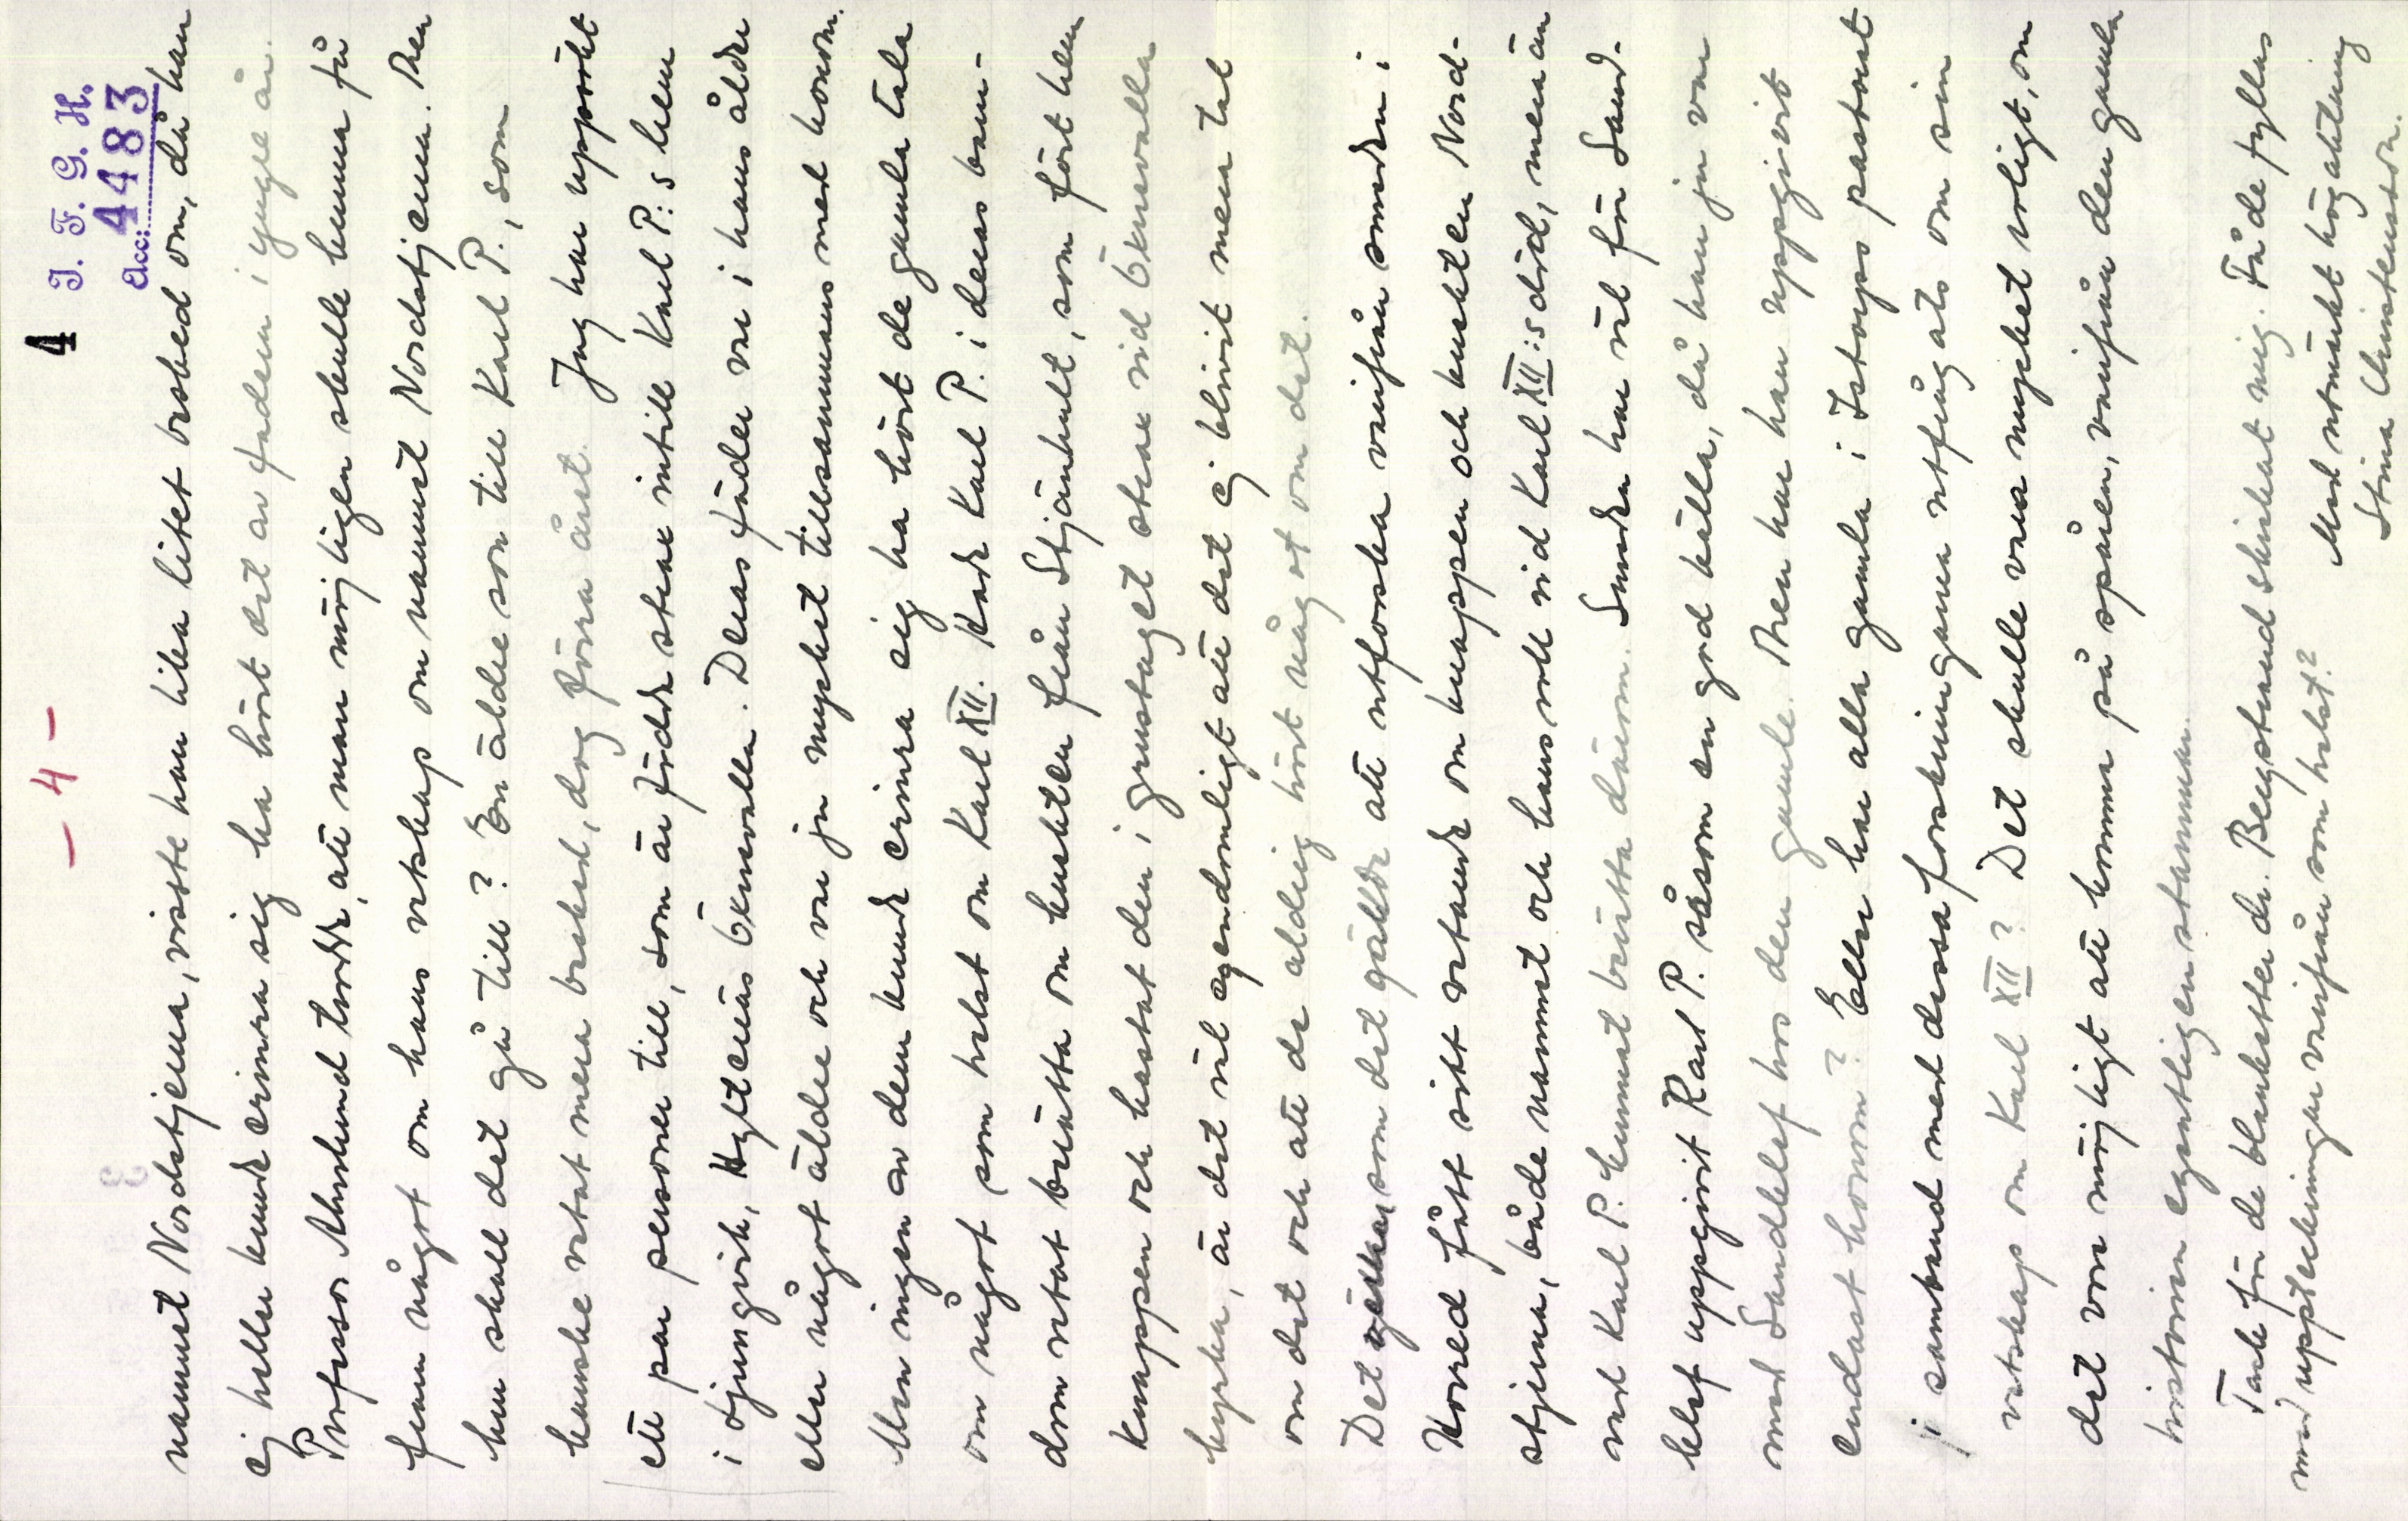 4
I. F. G. H.
Acc: 4483
- 4 -
namnet Nordstjerna, visste han lika litet besked om, då han
ej heller kunde erinra sig ha hört det av fadern i yngre år.
Professor Ahnlund trodde, att man möjligen skulle kunna få
fram något om hans vetskap om namnet Nordstjerna. Men
hur skall det gå till? En äldre son till Karl P., som
kanske vetat mera besked, dog förra året. Jag har uppsökt
ett par personer till, som är födda strax intill Karl P:s hem
i Ljungvik, Hyltenäs Öknevalla. Deras fäder var i hans ålder
eller något äldre och var ju mycket tillsammans med honom.
Men ingen av dem kunde erinra sig ha hört de gamla tala
om något som helst om Karl XII. Hade Karl P. i deras barn-
dom vetat berätta om kusken från Stjärnhult, som fört hem
knappen och kastat den i grustaget strax vid Öknevalla
kyrka, är det väl egendomligt att det ej blivit mera tal
om det och att de aldrig hört något om det.
Det som det gällde att utforska varifrån smeden i
Horred fått sitt vetande om knappen och kusken Nord-
stjerna, både namnet och hans roll vid Karl XII:s död, men än
vet Karl P. kunnat berätta därom. Sundén har väl för Sand-
klef uppgivit Karl P. såsom en god källa, då han ju var
med Sandklef hos den gamle. Men har han uppgivit
endast honom? Eller har alla gamla i Istorps pastorat
i samband med dessa forskningarna utfrågats om sin
vetskap om Karl XII? Det skulle vara mycket roligt, om
det vore möjligt att komma på spåren, varifrån den gamla
historien egentligen stammar.
Tack för de blanketter dr. Bergstrand skickat mig. Få de fyllas
med uppteckningar varifrån som helst?
Med utmärkt högaktning
Stina Christensson.